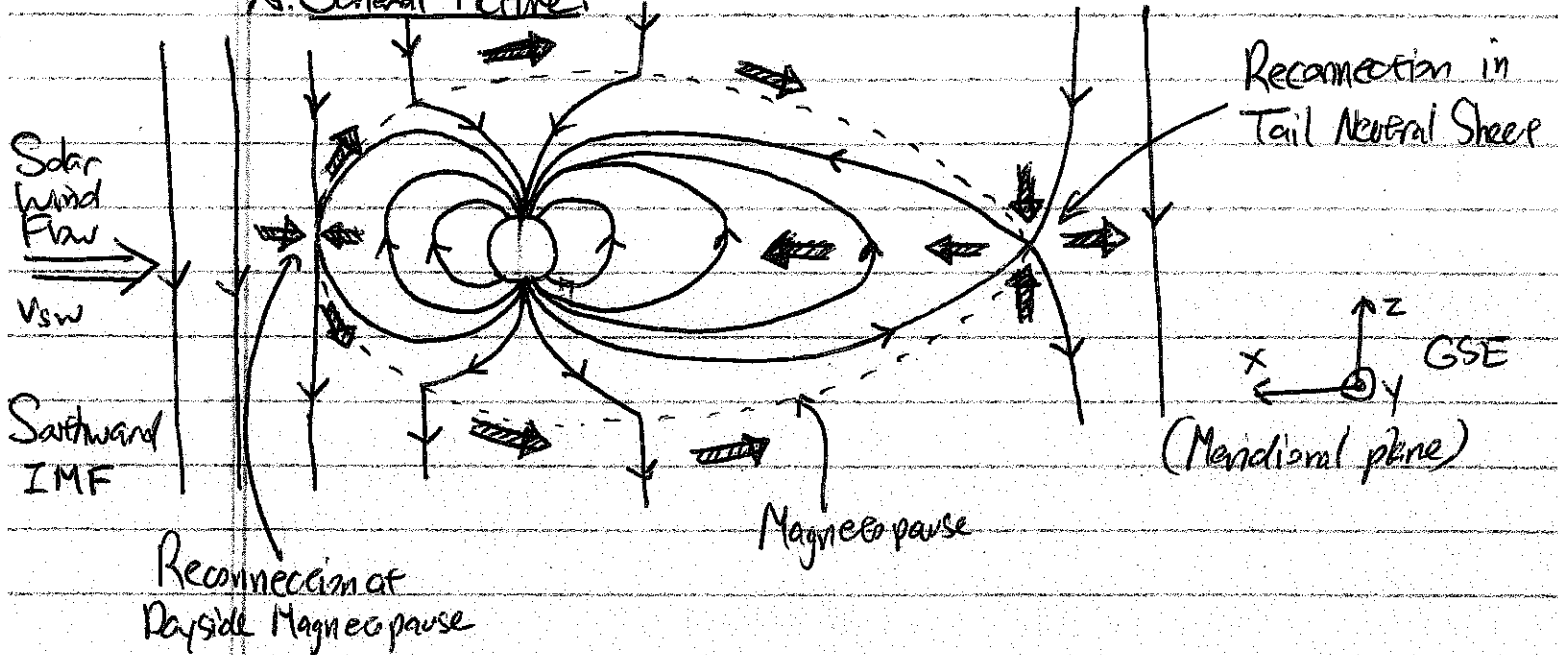 Reconnection in
Tail Neutral Sheet
Solar
Wind
Flow
Vsw
Southward
IMF
X
Z
Y
GSE
(Meridional plane)
Magnetopause
Reconnection at
Dayside Magnetopause